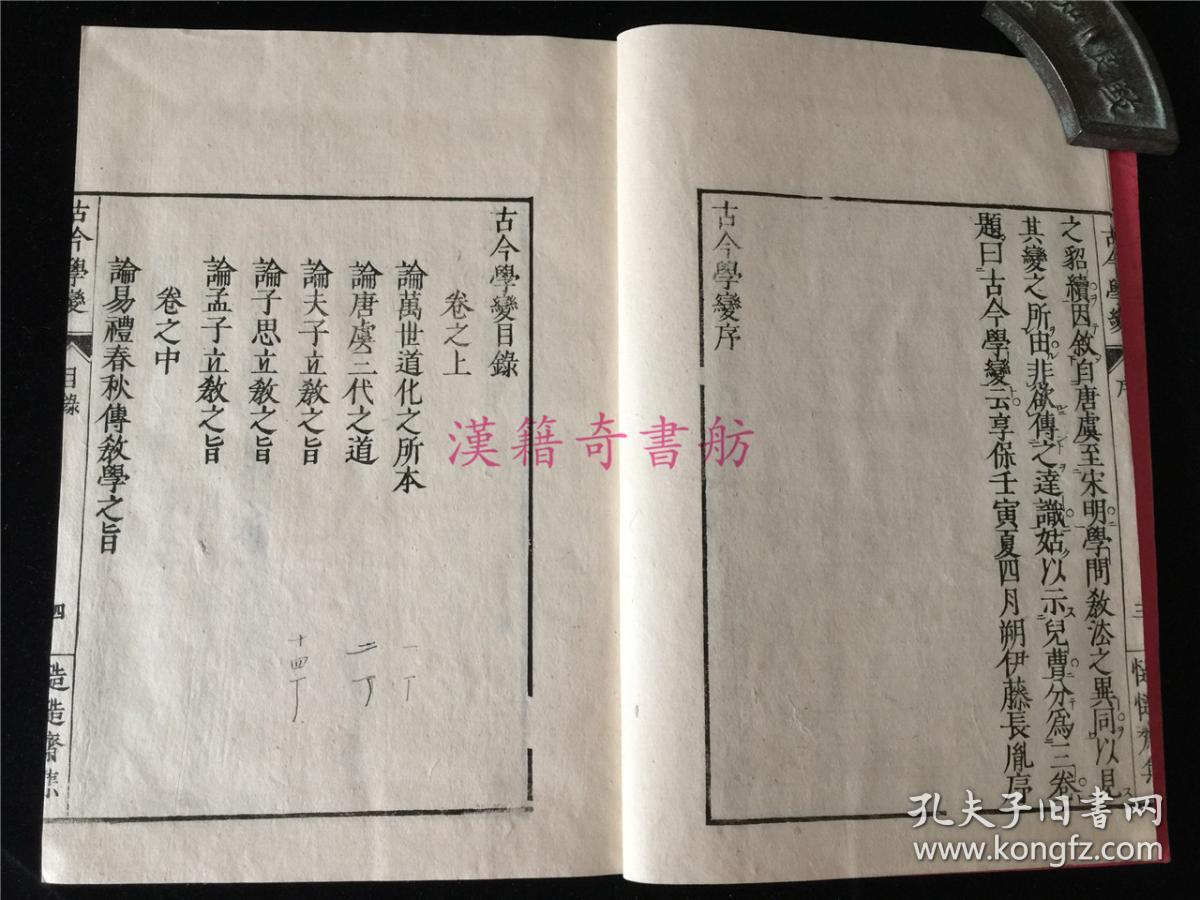 古今學變
序
三
之貂續因敘自唐虞至宋明學問教法之異同以見
其變之所由非欲傳之達識姑以示兒曹分為三卷
題曰古今學變云享保壬寅夏四月朔伊藤長胤序
古今學變序
古今學變目錄
卷之上
論萬世道化之所本
論唐虞三代之道
論夫子立教之旨
論子思立教之旨
論孟子立教之旨
卷之中
論易禮春秋傳教學之旨
一丁
二丁
十四丁
古今學變
目錄
四
漢籍奇書舫
孔夫子旧书网
www.kongfz.com